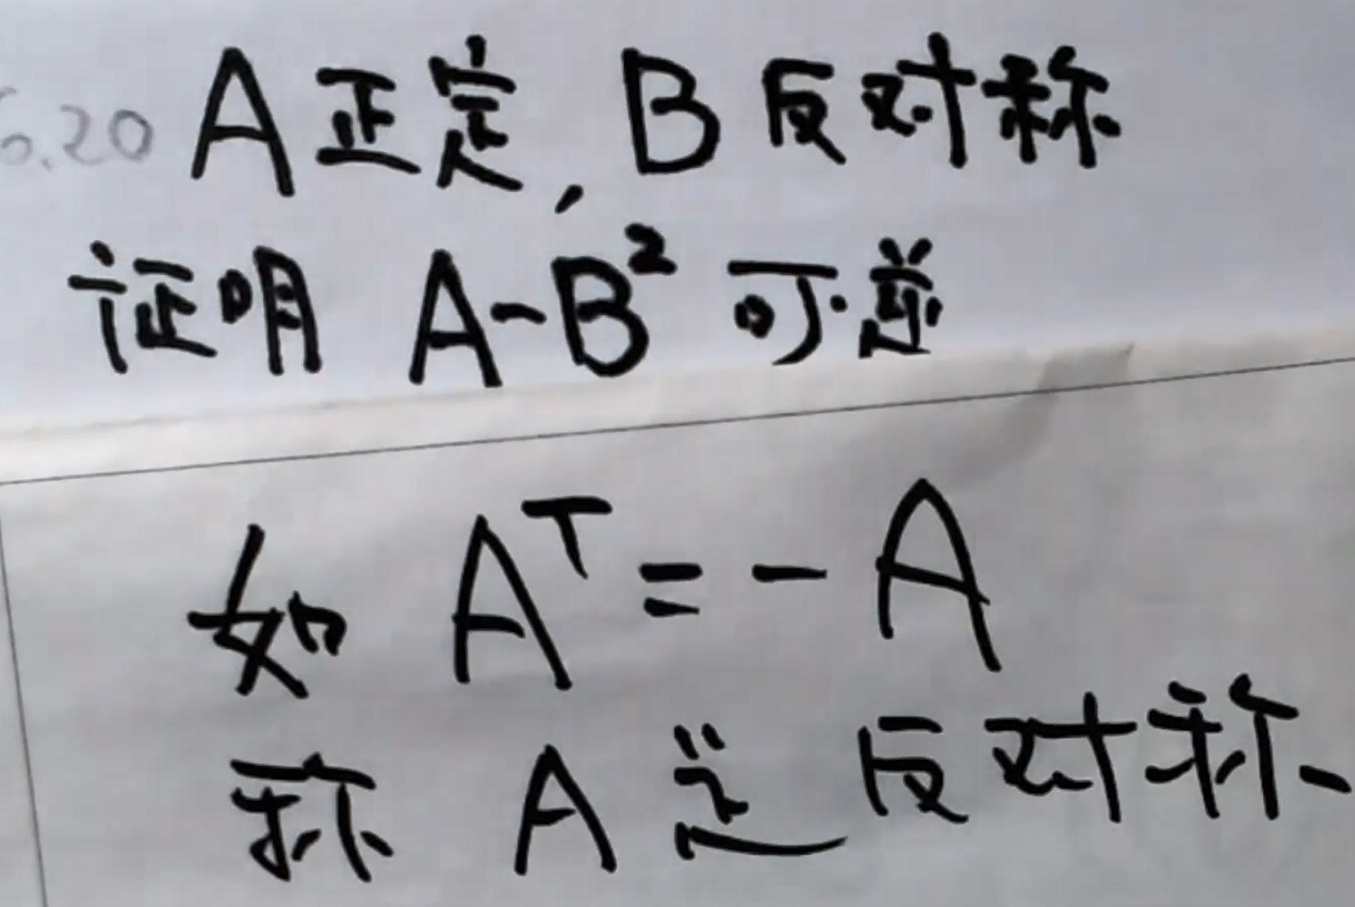 6.20 A正定, B反对称
证明 A-B² 可逆
如 Aᵀ=-A
称 A 是反对称